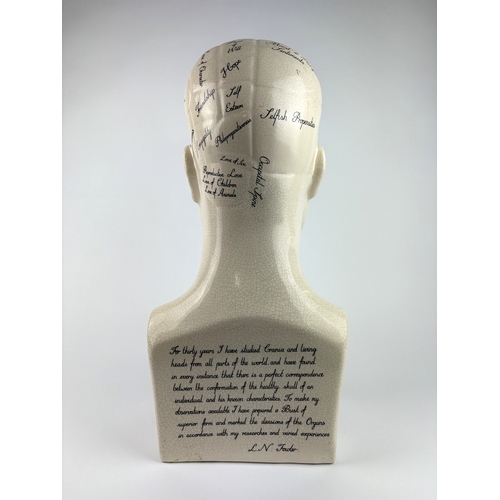 Will
Hope
Self
Esteem
Friendship
Selfish Propensities
Philoprogenitiveness
Love of Sex
Reproductive Love
Love of Children
Love of Animals
Occipital Spine
For thirty years I have studied Crania and living
heads from all parts of the world, and have found
in every instance that there is a perfect correspondence
between the conformation of the healthy skull of an
individual and his known characteristics. To make my
observations available I have prepared a Bust of
superior form and marked the divisions of the Organs
in accordance with my researches and varied experiences
L.N. Fowler